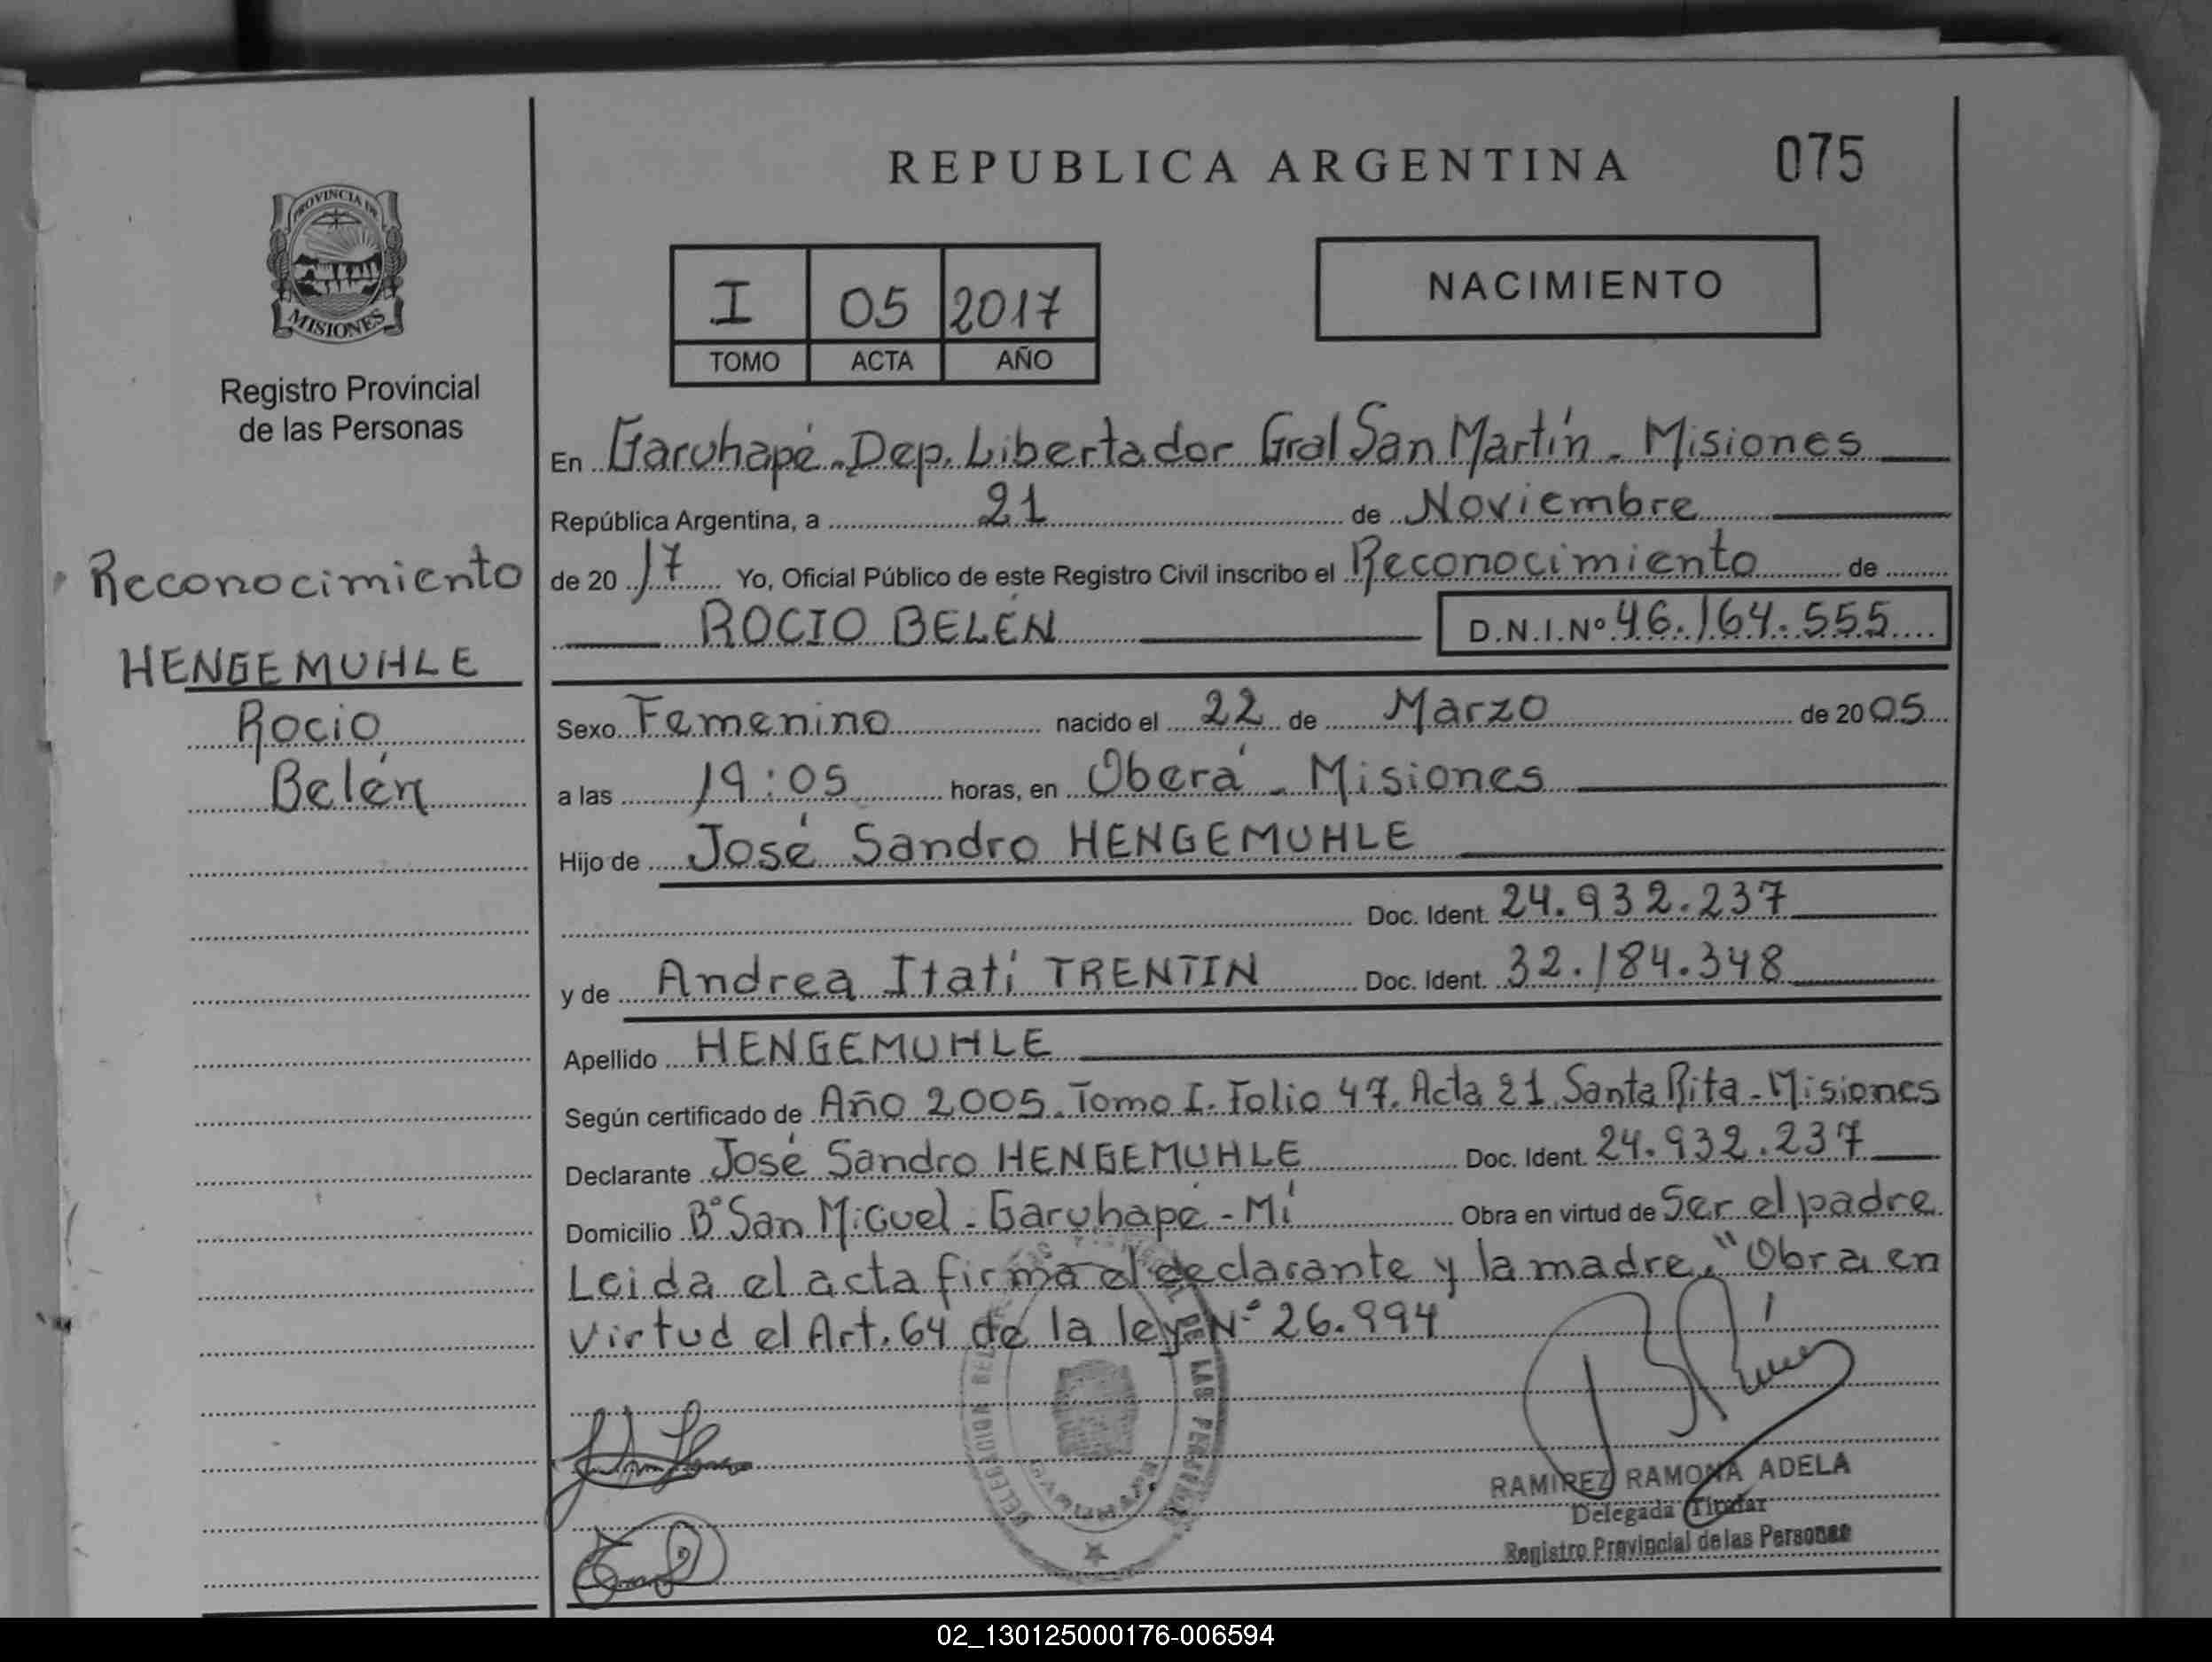 REPUBLICA ARGENTINA
075
PROVINCIA DE
MISIONES
Registro Provincial
de las Personas
I 05 2017
TOMO ACTA AÑO
NACIMIENTO
Reconocimiento
HENGEMUHLE
Rocio
Belén
En Garuhapé - Dep. Libertador Gral San Martín - Misiones
República Argentina, a 21 de Noviembre
de 20 17 Yo, Oficial Público de este Registro Civil inscribo el Reconocimiento de
ROCIO BELÉN D.N.I.Nº 46.164.555
Sexo Femenino nacido el 22 de Marzo de 20 05
a las 19:05 horas, en Oberá - Misiones
Hijo de José Sandro HENGEMUHLE
Doc. Ident. 24.932.237
y de Andrea Itatí TRENTIN Doc. Ident. 32.184.348
Apellido HENGEMUHLE
Según certificado de Año 2005. Tomo I. Folio 47. Acta 21. Santa Rita - Misiones
Declarante José Sandro HENGEMUHLE Doc. Ident. 24.932.237
Domicilio Bº San Miguel - Garuhapé - Mí Obra en virtud de Ser el padre
Leida el acta firma el declarante y la madre. "Obra en
virtud el Art. 64 de la ley Nº 26.994
DE LAS PERSONAS
GARUHAPE
RAMIREZ RAMONA ADELA
Delegada Titular
Registro Provincial de las Personas
02_130125000176-006594